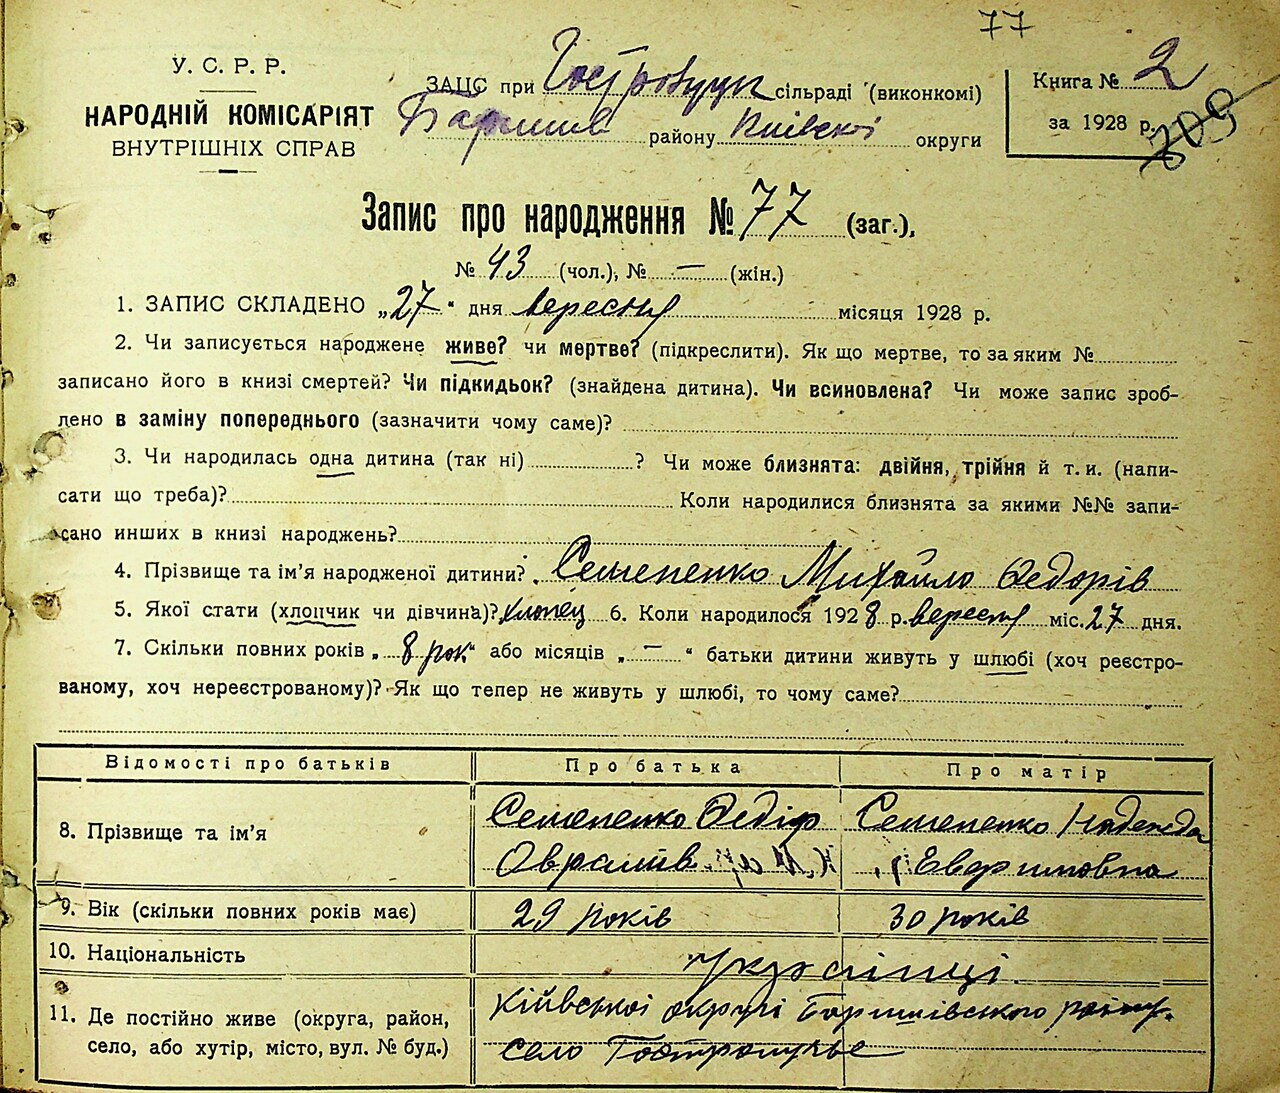 77
У. С. Р. Р.
НАРОДНІЙ КОМІСАРІЯТ
ВНУТРІШНІХ СПРАВ
ЗАЦС при сільраді (виконкомі)
району Київської округи
Книга № 2
за 1928 р.
209
Запис про народження № 77 (заг.),
№ 43 (чол.), № — (жін.)
1. ЗАПИС СКЛАДЕНО „27" дня вересня місяця 1928 р.
2. Чи записується народжене живе? чи мертве? (підкреслити). Як що мертве, то за яким №
записано його в книзі смертей? Чи підкидьок? (знайдена дитина). Чи всиновлена? Чи може запис зроб-
лено в заміну попереднього (зазначити чому саме)?
3. Чи народилась одна дитина (так ні) ? Чи може близнята: двійня, трійня й т. и. (напи-
сати що треба)? Коли народилися близнята за якими №№ запи-
сано инших в книзі народжень?
4. Прізвище та ім'я народженої дитини? Семененко Михайло Федорів
5. Якої стати (хлопчик чи дівчина)? хлопец 6. Коли народилося 1928 р. вересня міс. 27 дня.
7. Скільки повних років „8 рок" або місяців „—" батьки дитини живуть у шлюбі (хоч реєстро-
ваному, хоч нереєстрованому)? Як що тепер не живуть у шлюбі, то чому саме?
Відомості про батьків Про батька Про матір
8. Прізвище та ім'я Семененко Федір Семененко Надежда
9. Вік (скільки повних років має) 29 років 30 років
10. Національність українці
11. Де постійно живе (округа, район, Київської округі Баришівського району
село, або хутір, місто, вул. № буд.) село Гостролуччє